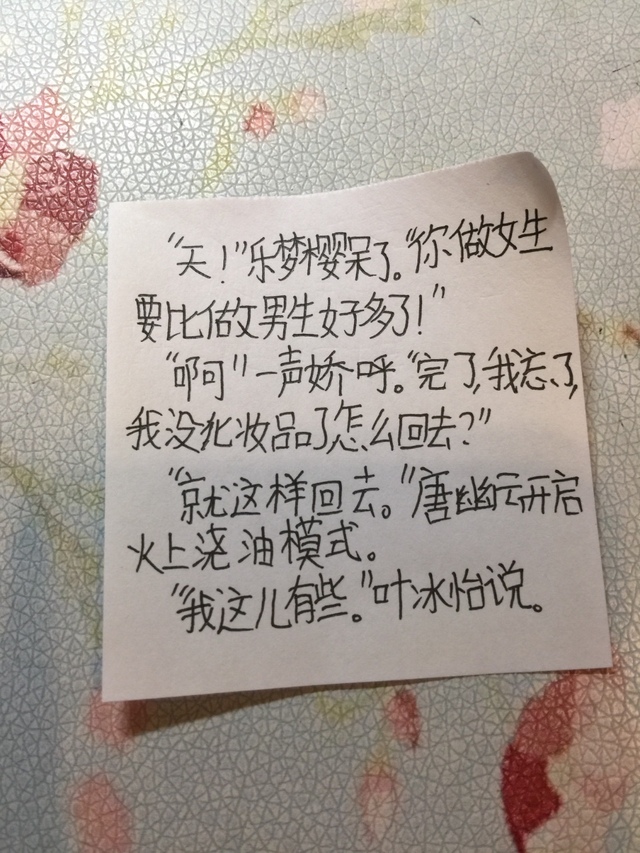 “天！”乐梦樱呆了。“你做女生
要比做男生好多了！”
“啊”一声娇呼。“完了，我忘了，
我没化妆品了怎么回去？”
“就这样回去。”唐幽云开启
火上浇油模式。
“我这儿有些。”叶冰怡说。